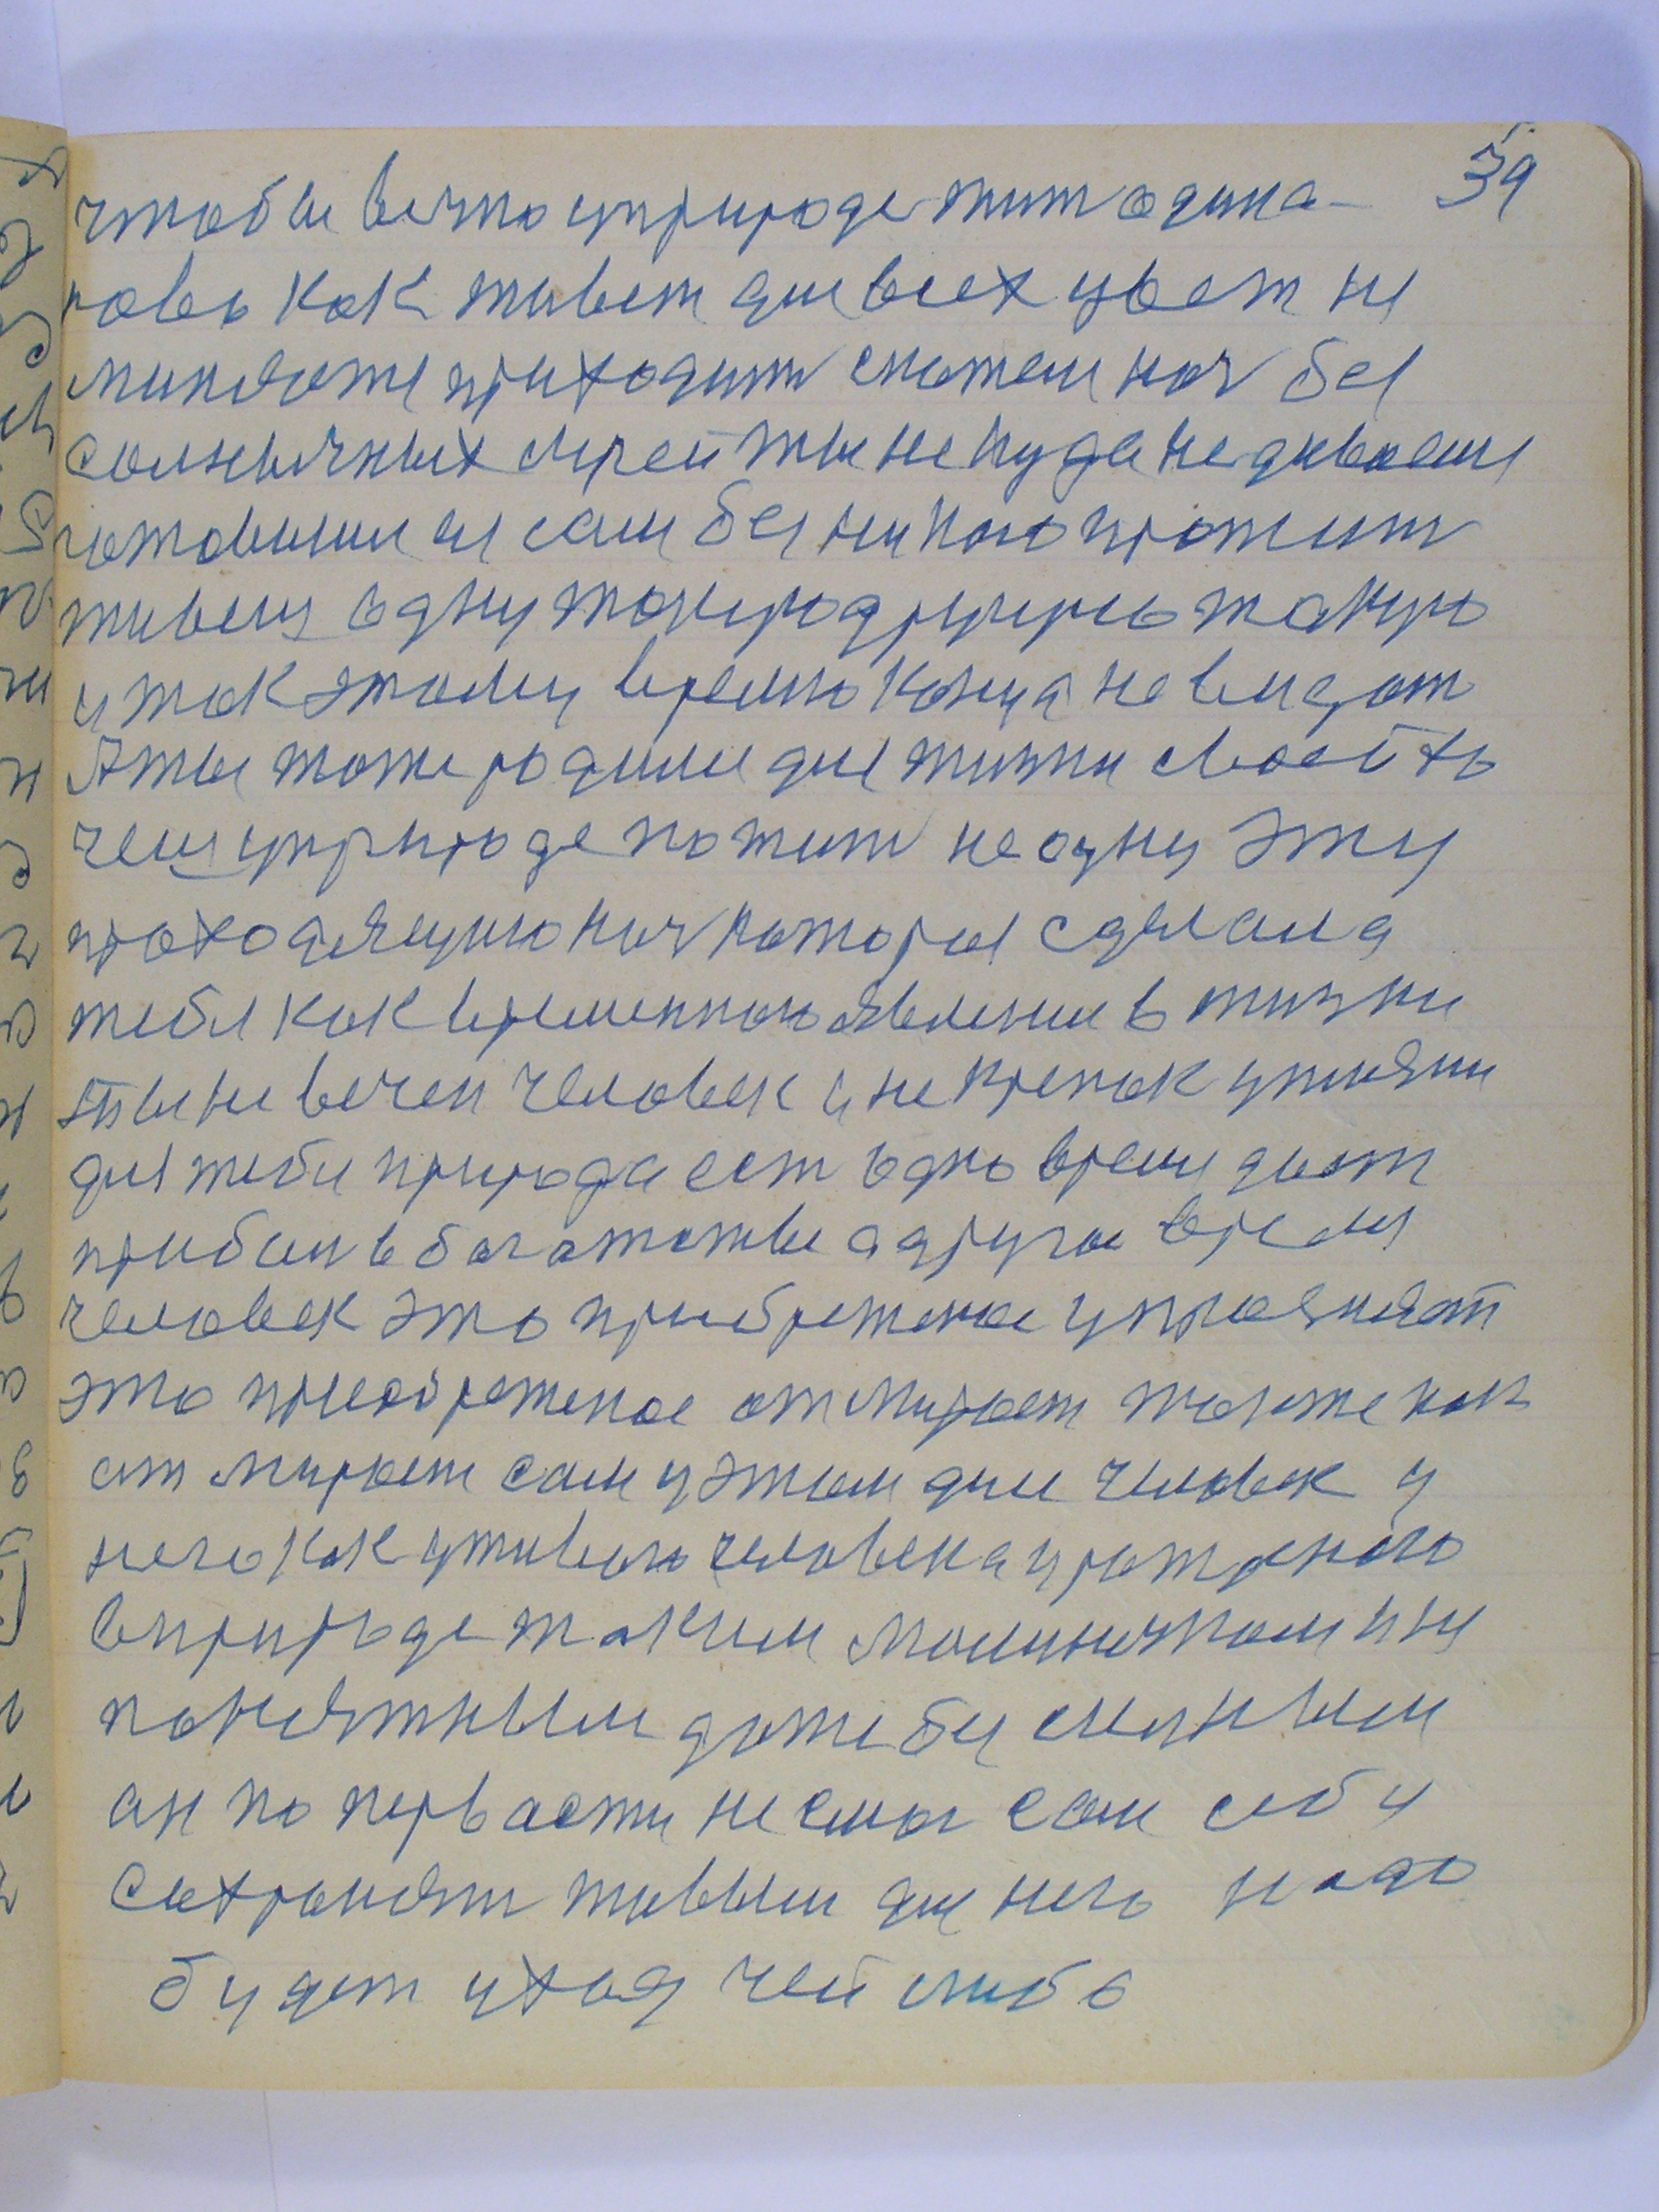 39
чтобы вечно уприроде жит одина-
ково как живет для всех цвет не
миноже приходит скажем ноч без
солнычных лучей ты не куда не диваеш
готовишся сам без никого прожит
живеш одну такую другую такую
и так этому время конца не видат
А ты тоже родился для жизни своей хо
чеш уприроде пожит не одну эту
проходящую ноч которая сделала
тебя как временною явление в жизни
ты не вечен человек и не крепок ужизни
для тебя природа ест одно время дает
прибыл в богатстве а другое время
человек это приобретеное упражняет
это приобретеное отмирает также как
отмирает сам уэтом деле человек у
него как уживого человека урожденого
вприроде таким маленичком и не
понятным даже бу сильным
он по первасти не смог сам себя
сохранят живым для него надо
будет уход чей либо